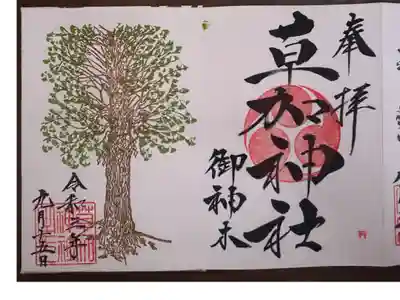 奉拝
草加神社
御神木
令和三年
九月十五日